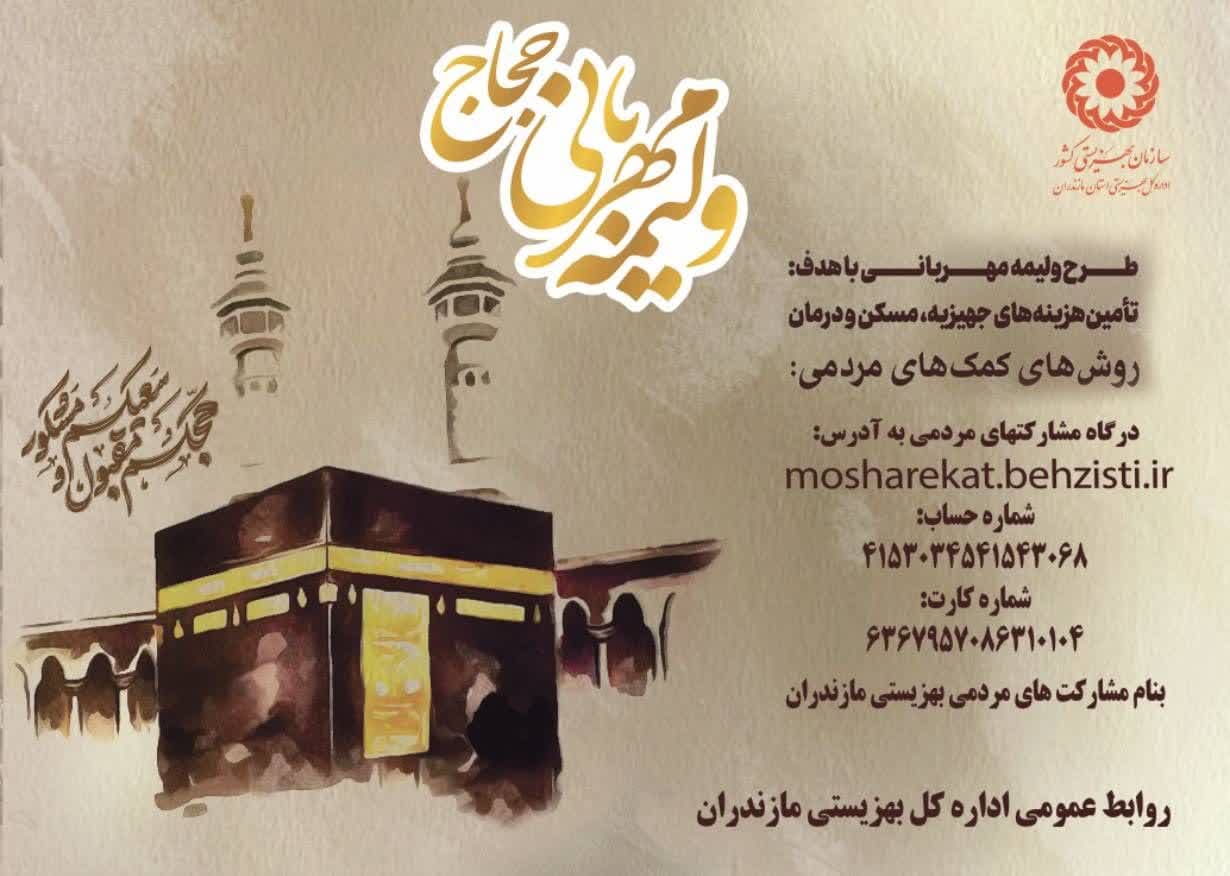 ولیمه مهربانی حجاج
سازمان بهزیستی کشور
اداره کل بهزیستی استان مازندران
طرح ولیمه مهربانی با هدف:
تأمین هزینه‌های جهیزیه، مسکن و درمان
روش‌های کمک‌های مردمی:
درگاه مشارکتهای مردمی به آدرس:
mosharekat.behzisti.ir
شماره حساب:
۴۱۵۳۰۳۴۵۴۱۵۴۳۰۶۸
شماره کارت:
۶۳۶۷۹۵۷۰۸۶۳۱۰۱۰۴
بنام مشارکت های مردمی بهزیستی مازندران
سعیکم مشکور
حجکم مقبول و
روابط عمومی اداره کل بهزیستی مازندران